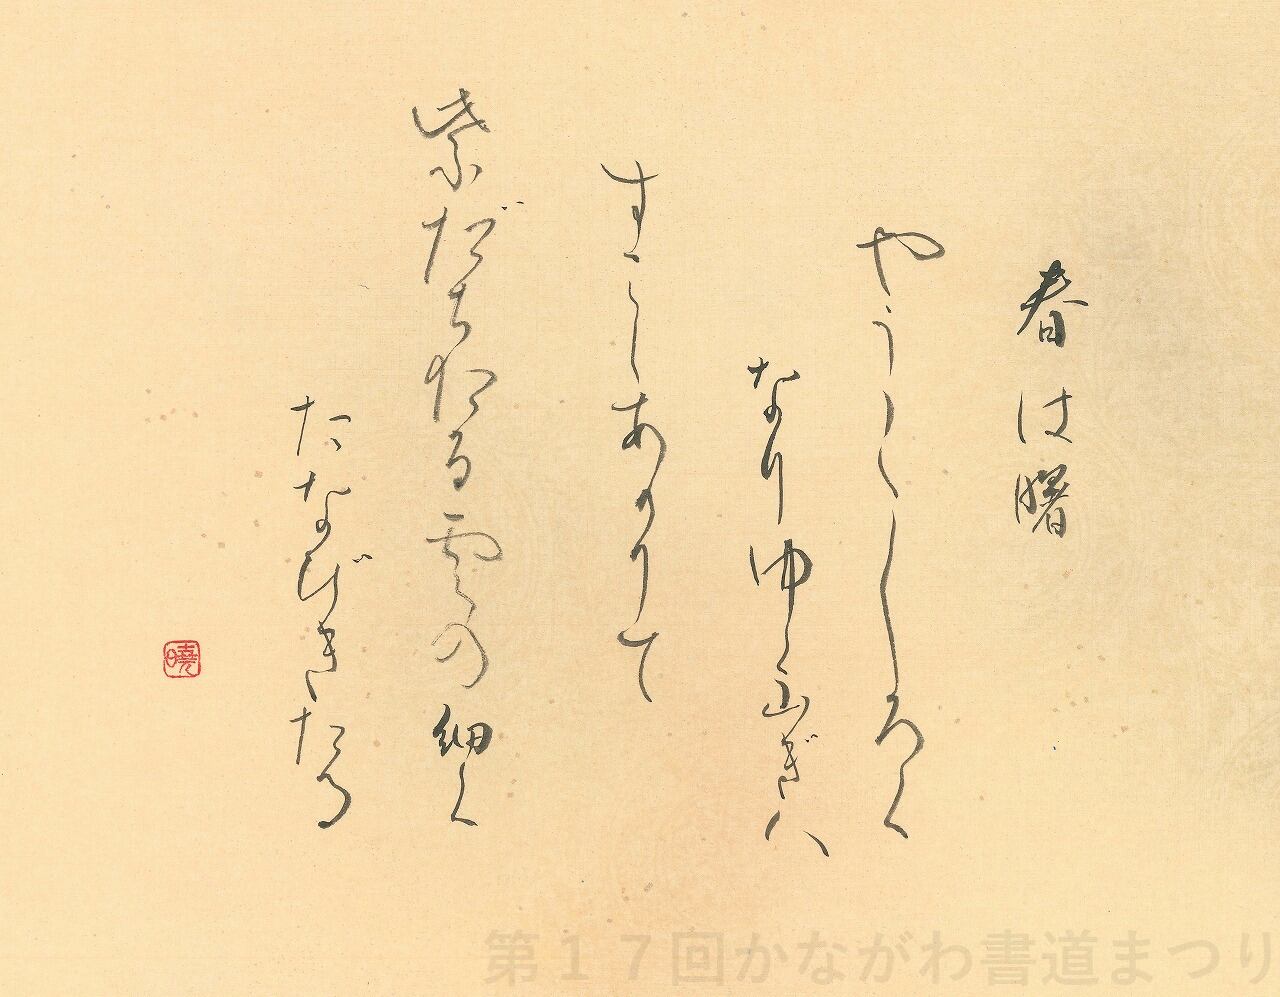 春は曙
やう〳〵しろく
なりゆく山ぎハ
すこしあかりて
紫だちたる雲の細く
たなびきたる
曉
第１７回かながわ書道まつり